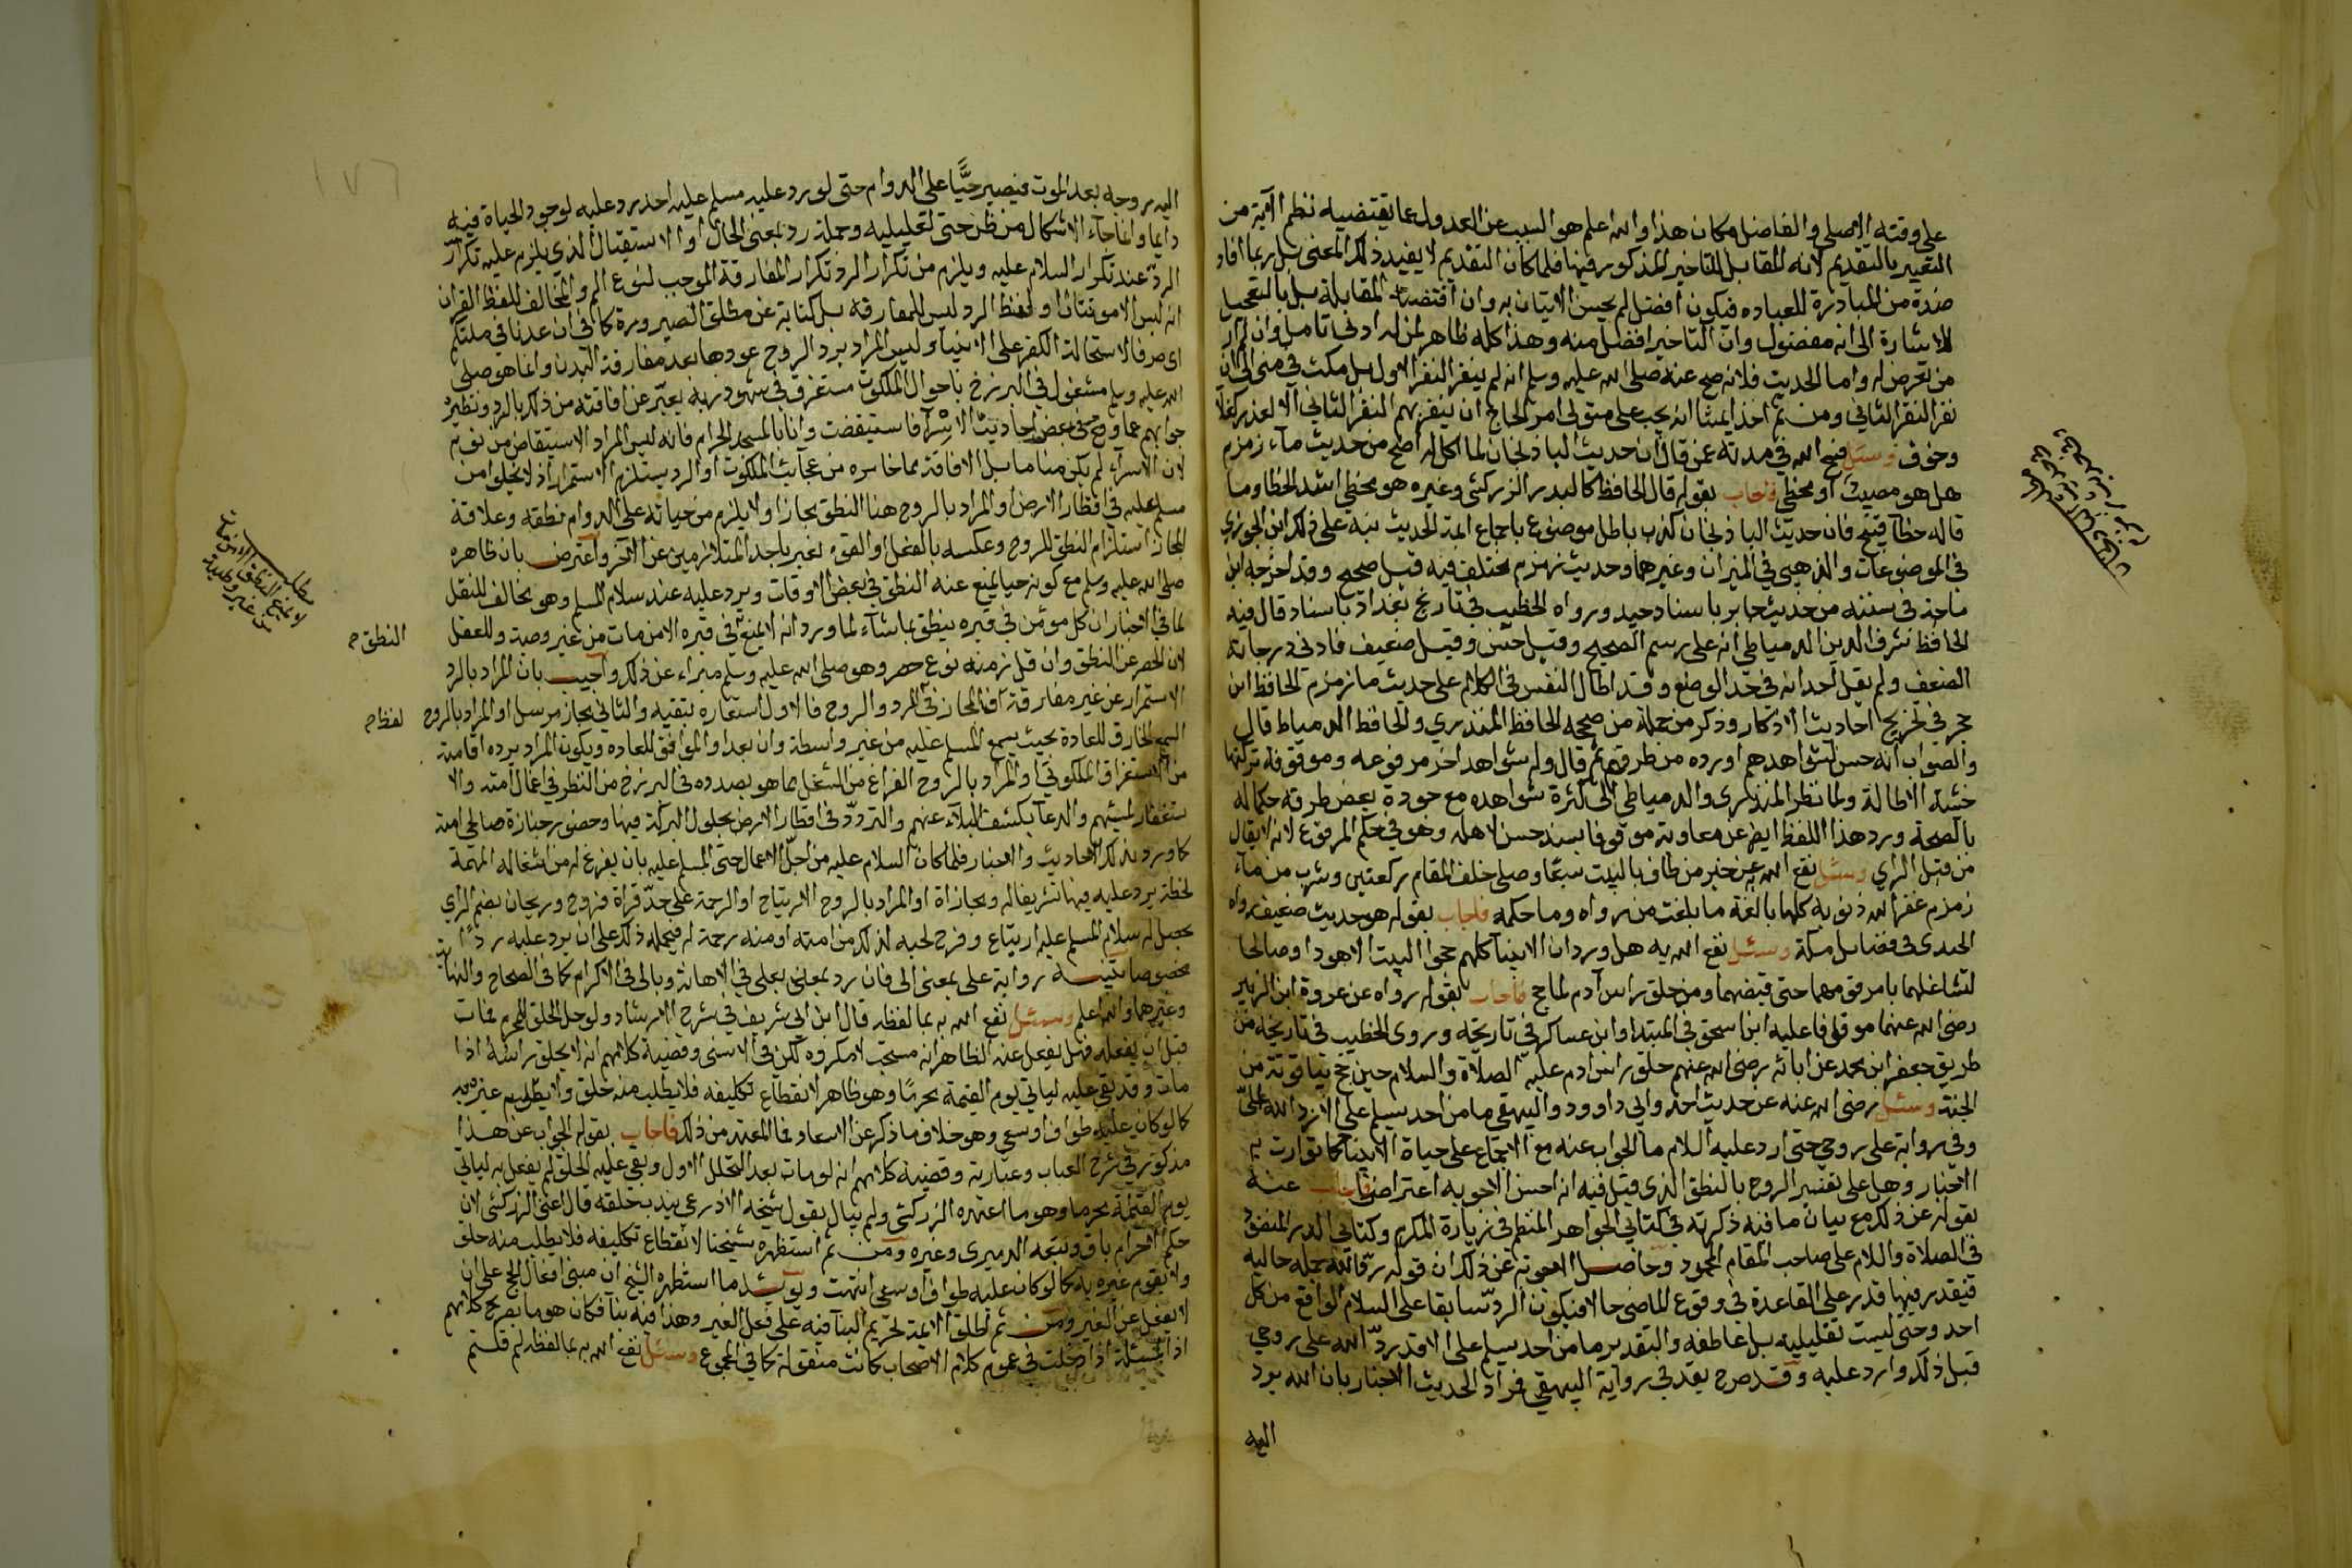 على وقته الاصلي والفاضل مكان هذا والله اعلم هو السبب عن العدول عما يقتضيه نظم الآية من
التعبير بالتقديم لانه المقابل للتاخير المذكور فيها فلما كان التقديم لا يفيد ذلك المعنى بل ربما افاد
ضده من المبادرة للعباده فيكون افضل لم يحسن الاتيان به وان اقتضته المقابلة بل بالتعجيل
للاشارة الى انه مفضول وان التاخير افضل منه وهذا كله ظاهر لمن له ادنى تامل وان لم ار
من تعرض له واما الحديث فلانه صح عنه صلى الله عليه وسلم انه لم ينفر النفر الاول بل مكث في منى الى ان
نفر النفر الثاني ومن ثم اخذ ايمتنا انه يجب على متولى امر الحاج ان ينفر بهم النفر الثاني الا لعذر كغلا
وخوف وسئل فسح الله في مدته عن قال ان حديث الباذنجان لما اكل له اصح من حديث ماء زمزم
هل هو مصيب او مخطي فاجاب بقوله قال الحافظ كالبدر الزركشي وغيره هو مخطي اشد الخطا وما
قاله خطا قبيح فان حديث الباذنجان كذب باطل موضوع باجماع ائمة الحديث نبه على ذلك ابن الجوزي
في الموضوعات والذهبي في الميزان وغيرهما وحديث زمزم مختلف فيه قيل صحيح وقد اخرجه ابن
ماجة في سننه من حديث جابر باسناد جيد ورواه الخطيب في تاريخ بغداد باسناد قال فيه
الحافظ شرف الدين الدمياطي انه على رسم الصحيح وقيل حسن وقيل ضعيف فادنى درجاته
الضعف ولم يقل احد انه في حد الوضع وقد اطال النفس في الكلام على حديث ما زمزم الحافظ ابن
حجر في تخريج احاديث الاذكار وذكر من جملة من صححه الحافظ المنذري والحافظ الدمياط قال
والصواب انه حسن لشواهدهم اورده من طرق ثم قال وله شواهد اخر مرفوعه وموقوفة تركتها
خشية الاطالة ولما نظر المنذري والدمياطي الى كثرة شواهده مع جودة بعض طرقه حكما له
بالصحة وورد هذا اللفظ ايض عن معاوية موقوفا بسند حسن لاهله وهو في حكم المرفوع لانه لا يقال
من قبل الراي وسئل نفع الله به عن خبر من طاف بالبيت سبعا وصلى خلف المقام ركعتين وشرب من ماء
زمزم غفر الله ذنوبه كلها بالغة ما بلغت من رواه وما حكمه فاجاب بقوله هو حديث ضعيف رواه
الجندي في فضايل مكة وسئل نفع الله به هل ورد ان الانبيا كلهم حجوا البيت الا هودا وصالحا
لتشاغلهما بامر قومهما حتى قبضهما ومن حلق راس آدم لما حج فاجاب بقوله رواه عن عروة ابن الزبير
رضى الله عنهما موقوفا عليه ابن اسحق في المبتدا وابن عساكر في تاريخه وروى الخطيب في تاريخه من
طريق جعفر ابن محمد عن ابائه رضى الله عنهم حلق راس ادم عليه الصلاة والسلام حين حج بياقوتة من
الجنة وسئل رضى الله عنه عن حديث احد وابي داوود والبيهقي ما من احد يسلم على الا رد الله الىّ
وفي رواية على روحي حتى ارد عليه السلام ما الجواب عنه مع الاجماع على حياة الانبيا كما تواترت به
الاخبار وهل على تفسير الروح بالنطق الذي قيل فيه انه احسن الاجوبه اعتراض فاجاب عنه
بقوله عن ذلك مع بيان ما فيه ذكرته في كتابي الجواهر المنظم في زيارة المكرم وكتابي الدر المنضود
في الصلاة والسلام على صاحب المقام المحمود وحاصل الاجوبة عن ذلك ان قوله رد الله جملة حاليه
فيقدر فيها قد على القاعدة في وقوع الماضي حالا فيكون الرد سابقا على السلام الواقع من كل
احد وحتى ليست تعليلية بل عاطفه والتقدير ما من احد يسلم على الا قد رد الله على روحي
قبل ذلك وارد عليه وقد صرح بقد في رواية البيهقي فراد الحديث الاخبار بان الله يرد
اليه
اليه روحه بعد الموت فيصير حيّا على الدوام حتى لو رد عليه مسلم عليه احد رد عليه لوجود الحياة فيه
دايما وانما جاء الاشكال من ظن حتى تعليليه وجملة رد بمعنى الحال او الاستقبال الذي يلزم عليه تكرر
الرد عند تكرار السلام عليه ويلزم من تكرار الرد تكرار المفارقة الموجب لنوع الم والمخالف للفظ القران
انه ليس الا موتتان او لفظ الرد ليس للمفارقه بل كناية عن مطلق الصيرورة كما في ان عدنا في ملتكم
اى صرفا لاستحالة الكفر على الانبيا وليس المراد برد الروح عودها بعد مفارقة البدن وانما هو صلى
الله عليه وسلم مشغول في البرزخ باحوال الملكوت مستغرق في شهود ربه يعبر عن افاقته من ذلك بالرد ونظيره
جوابهم عما وقع في بعض احاديث الاسرا فاستيقضت وانا بالمسجد الحرام فانه ليس المراد الاستيقاض من نوم
لان الاسراء لم يكن مناما بل الافاقة مما خامره من عجائب الملكوت او الرد يستلزم الاستمرار اذ لا يخلو من
مسلم عليه في اقطار الارض او المراد بالروح هنا النطق مجازا ولا يلزم من حياته على الدوام نطقه وعلاقة
المجاز استلزام النطق للروح وعكسه بالفعل او القوة فعبر باحد المتلازمين عن الآخر واعترض بان ظاهره
صلى الله عليه وسلم مع كونه حيا يمنع عنه النطق في بعض الاوقات ويرد عليه عند سلام المسلم وهو مخالف للنقل
لما في الاخبار ان كل مومن في قبره ينطق بما شاء لما ورد انه لا يمنع في قبره الا من مات من غير وصية وللعقل
لان الحصر عن النطق وان قل زمنه نوع حصر وهو صلى الله عليه وسلم مبراء عن ذلك واجيب بان المراد بالرد
الاستمرار عن غير مفارقة فالمجاز في الرد والروح فالاول استعاره تبعية والثاني مجاز مرسل او المراد بالروح
السمع الخارق للعادة بحيث يسمع المسلم عليه من غير واسطة وان بعد او الموافق للعاده ويكون المراد برده افاقته
من الاستغراق الملكوتي او المراد بالروح الفراغ من الشغل بما هو بصدده في البرزخ من النظر في اعمال امته والا
ستغفار لمسيئهم والدعا بكشف البلاء عنهم والتردد في اقطار الارض بحلول البركة فيها وحضور جنازة صالحي امته
كما ورد بذلك الاحاديث والاخبار فلما كان السلام عليه من اجل الاعمال خص المسلم عليه بان يفرغ له من اشغاله المهمة
لحظة يرد عليه فيها تشريفا له ومجازاة او المراد بالروح الارتياح او الرحمة على حد قراة فروح وريحان بضم الراي
يحصل له بسلام المسلم عليه ارتياح وفرح لحبه لذلك من امته او منه رحمة له فيحمله ذلك على ان يرد عليه
بخصوصا رواية على بمعنى الى فان رد يعلى في الاهانة وبالى في الاكرام كما في الصحاح والنهاية
وغيرهما والله اعلم وسئل نفع الله به بما لفظه قال ابن ابي شريف في شرح الارشاد ولو دخل الحلق للمحرم فمات
قبل ان يفعله فهل يفعل عنه الظاهر انه مستحب لا مكروه لكن في الاسنى وقضية كلامهم انه لا يحلق راسه اذا
مات وقد بقى عليه لياتي يوم القيمة محرما وهو ظاهر لانقطاع تكليفه فلا يطلب منه حلق ولا يقوم غيره به
كما لو كان عليه طواف او سعي وهو خلاف ما ذكر عن الاسعاد فما المعتمد من ذلك فاجاب بقوله الجواب عن هذا
مذكور في شرح العباب وعبارته وقضية كلامهم انه لو مات بعد التحلل الاول وبقي عليه الحلق لم يفعل به لياتي
يوم القيمة محرما وهو ما اعتمده الزركشي ولم يبال بقول شيخه الاذرعي يندب حلقه قال اعني الزركشي لان
حكم الاحرام باق وتبعه الدميرى وغيره ومن ثم استظهره شيخنا لانقطاع تكليفه فلا يطلب منه حلق
ولا يقوم غيره به كما لو كان عليه طواف او سعى انتهت ويوئيد ما استظهره الشيخ ان مبنى افعال الحج على ان
لا يفعل عن الغير ومن ثم اطلق الائمة تحريم البنا فيه على فعل الغير وهذا فيه بنا فكان هو ما يصرح كلامهم
اذ المسئلة اذا دخلت في عموم كلام الاصحاب كانت منقولة كما في المجموع وسئل نفع الله به بما لفظه لم قلتم
النطق ح
لفظ ح
مطلب
لا يمنع النطق الا من مات
من غير وصية